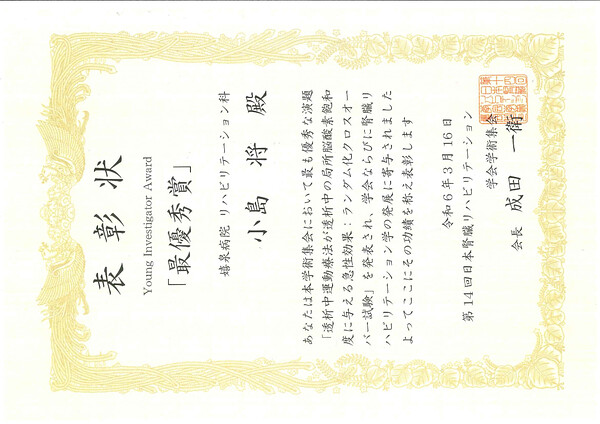 表彰状
Young Investigator Award
「最優秀賞」
嬉泉病院 リハビリテーション科
小島 将 殿
あなたは本学術集会において最も優秀な演題
「透析中運動療法が透析中の局所脳酸素飽和
度に与える急性効果：ランダム化クロスオー
バー試験」を発表され、学会ならびに腎臓リ
ハビリテーション学の発展に寄与されました
よってここにその功績を称え表彰します
令和6年3月16日
第14回日本腎臓リハビリテーション
学会学術集会
会長 成田 一衛